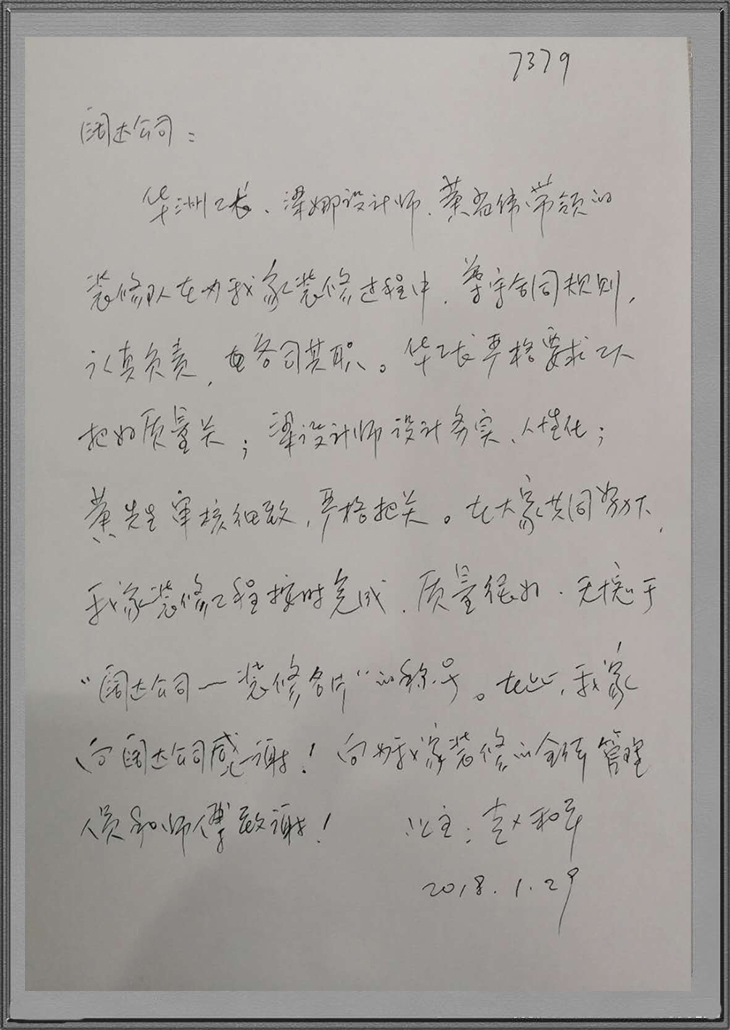 7379
阔达公司：
华洲工长、梁娜设计师、黄省伟带领的
装修队在为我家装修过程中，尊守合同规则，
认真负责，各司其职。华工长严格要求工人
把好质量关；梁设计师设计务实、人性化；
黄先生审核细致，严格把关。在大家共同努力下，
我家装修工程按时完成，质量很好，无愧于
“阔达公司一装修名片”的称号。在此，我家
向阔达公司感谢！向为我家装修的全体管理
人员和师傅致谢！
业主：赵和平
2018.1.29